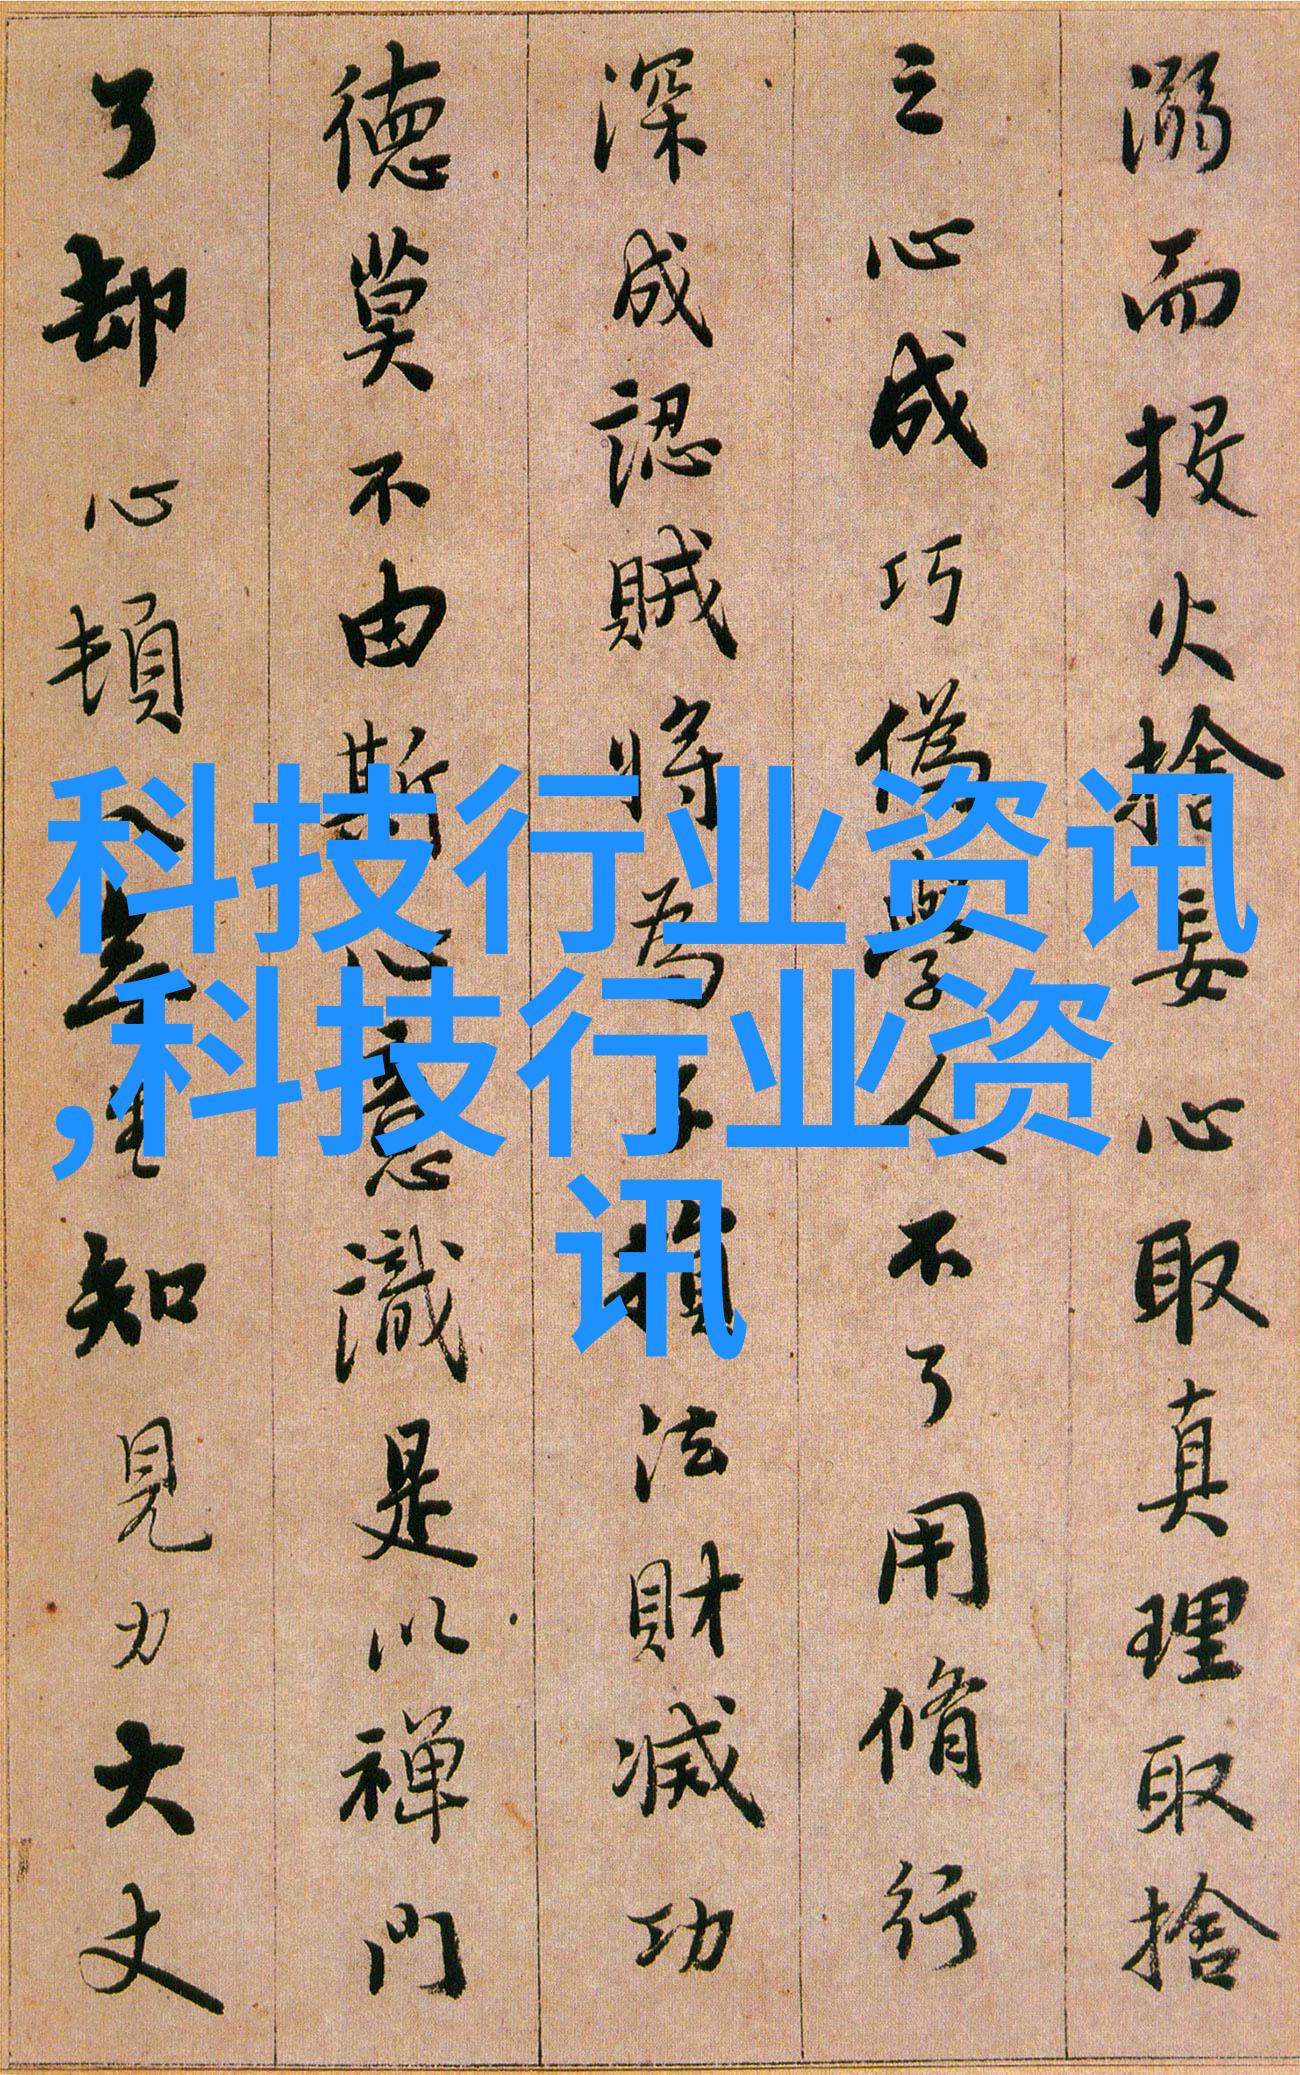 溺而投火捨妄心取真理取捨
之心成巧偽學人不了用脩行
深成認賊將為子損法財滅功
德莫不由斯心意識是以禪門
了却心頓入無生知見力大丈
科技行业资讯
,科技行业资
讯